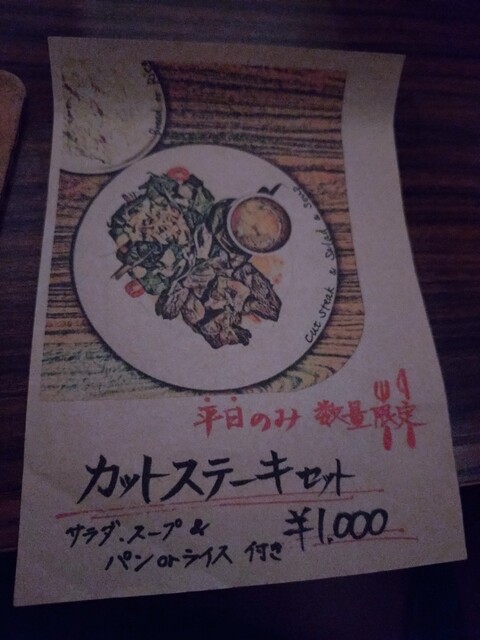 Cut steak & Salad & Soup
平日のみ 数量限定
カットステーキセット
サラダ、スープ &
¥1,000
パン or ライス 付き